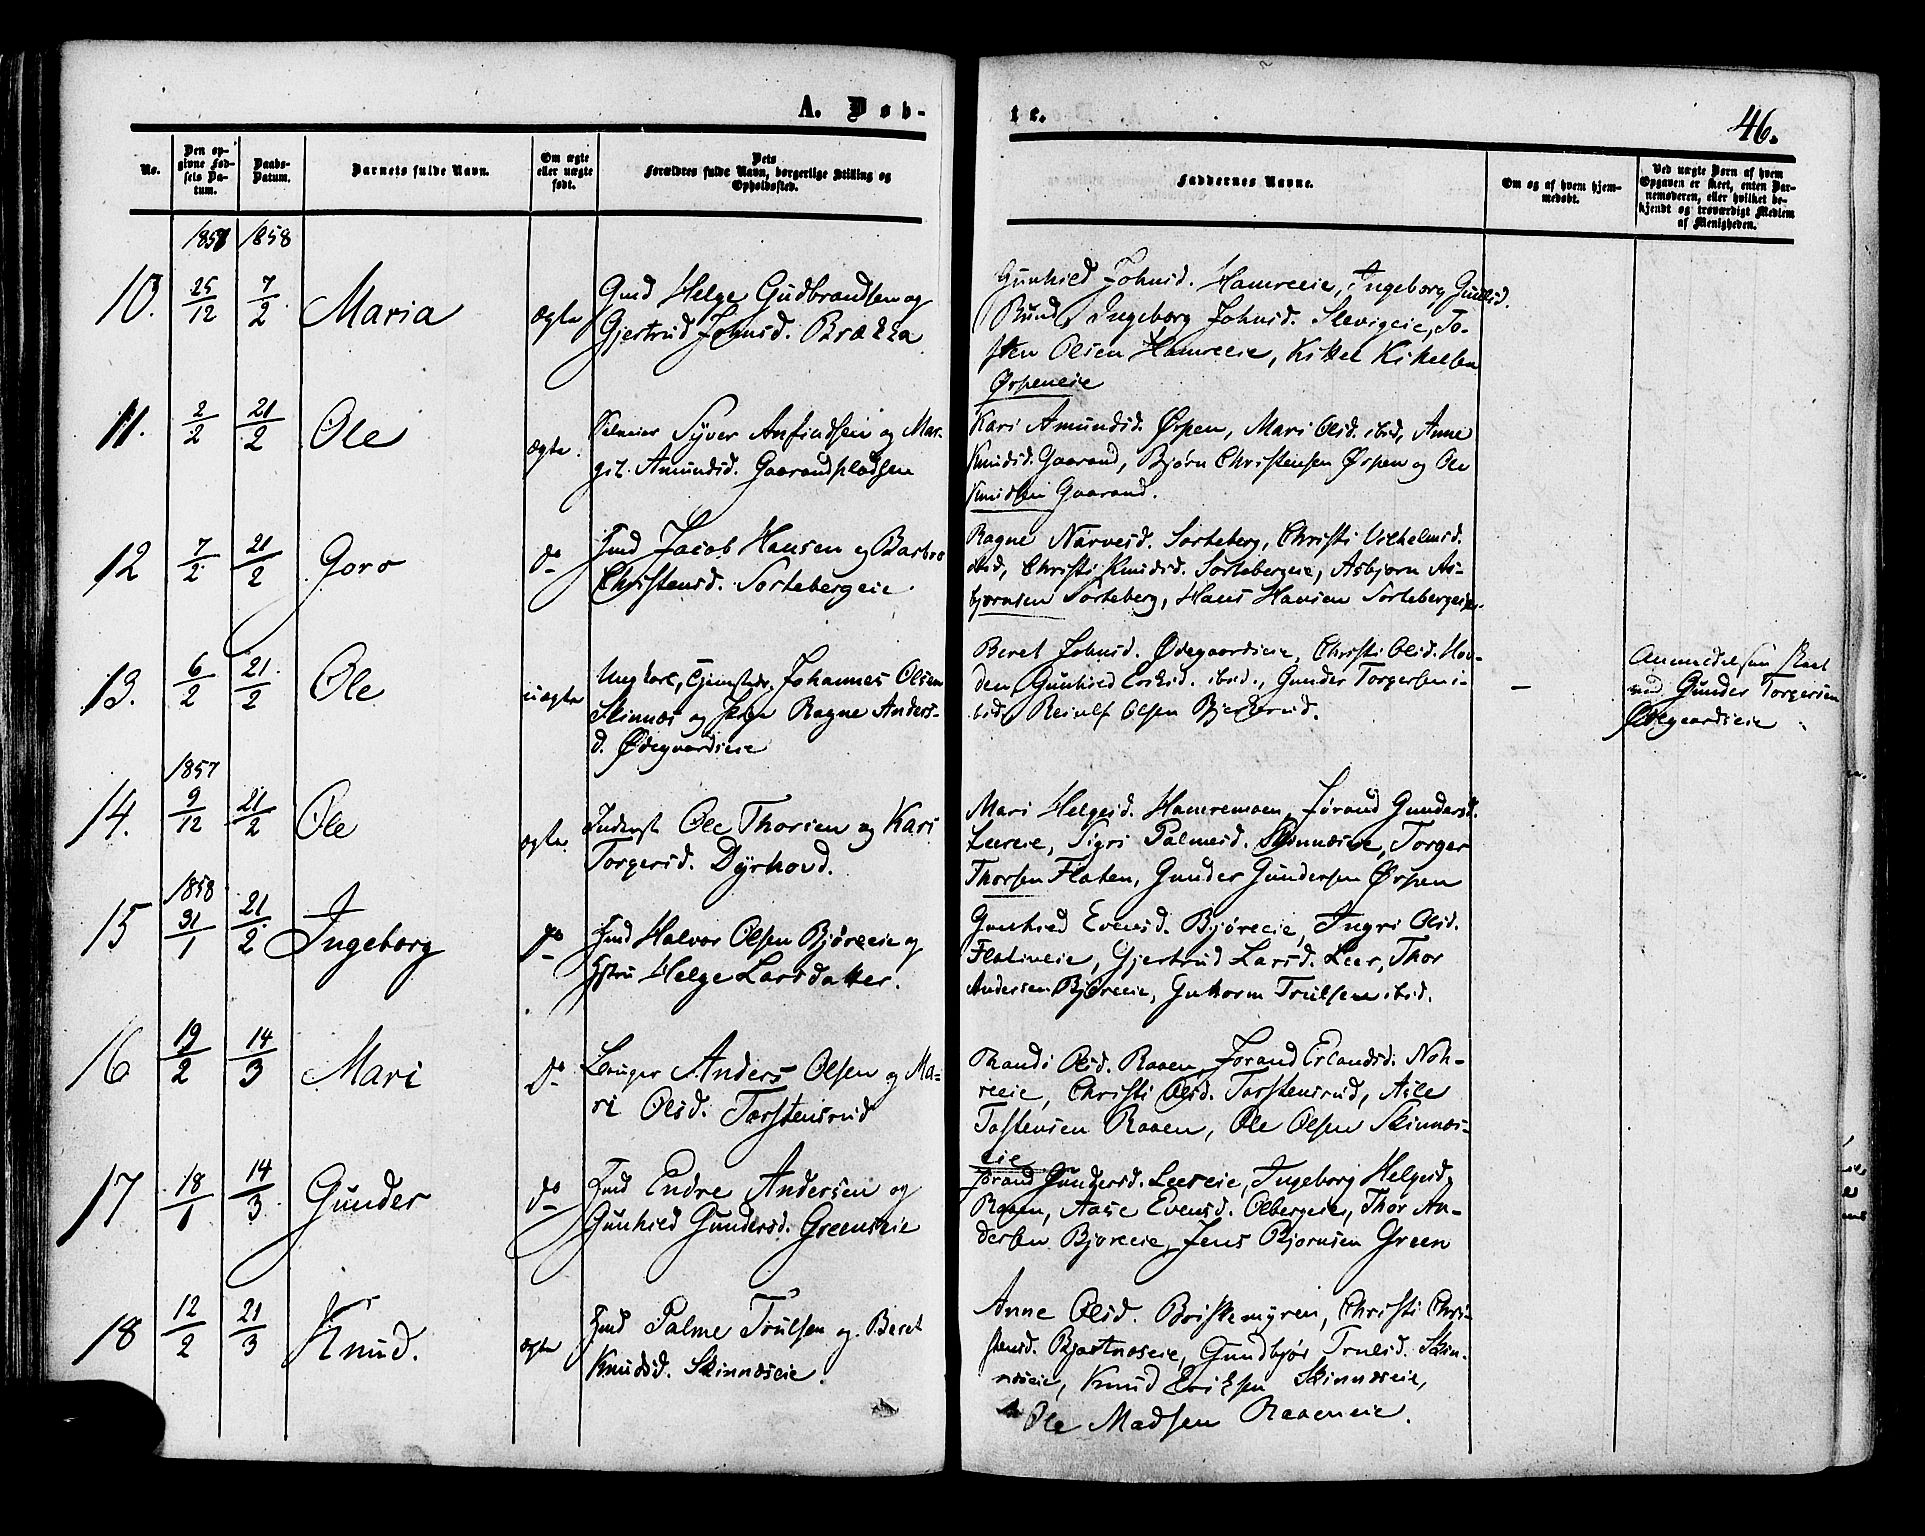 A. Døb-
te.
46.
No.
Den op-
givne Fød-
sels Da-
tum.
Daabs-
Datum.
Barnets fulde Navn.
Om ægte
eller uægte
født.
Dets
Forældres fulde Navn, borgerlige Stilling og
Opholdssted.
Faddernes Navne.
Om og af hvem hjem-
medøbt.
Ved uægte Børn af hvem
Opgaven er skeet, enten Bar-
nemoderen, eller hvilket be-
kjendt og troværdigt Medlem
af Menigheden.
1857 1858
10. 25/12 7/2 Maria ægte
Gmd Helge Gudbrandsen og
Gjertrud Johnsd. Brækka
Gunhild Johnsd. Hamreeie, Ingeborg Gulliksd.
Rund, Ingeborg Johnsd. Slevigeie, To-
sten Olsen Hamreeie, Kittel Kittelsen
Ørpeneie
11. 2/2 21/2 Ole ægte.
Syver Anfindsen og Mar-
git Amundsd. Gaarandpladsen
Kari Amundsd. Ørpen, Mari Olsd. ibid, Anne
Knudsd. Gaarand, Bjørn Christensen Ørpen og Ole
Knudsen Gaarand.
12 7/2 21/2 Goro do
Hmd Jacob Hansen og Barbro
Christensd. Sortebergeie.
Ragne Narvesd. Sorteberg, Christi Vilhelmsd.
ibid, Christi Knudsd. Sortebergeie, Asbjørn As-
bjørnsen Sorteberg, Hans Hansen Sortebergeie.
13. 6/2 21/2 Ole uægte
Ungkarl, Johannes Olsen
Skinnæs og Pige Ragne Anders-
d. Ødegaardseie
Beret Johnsd. Ødegaardseie, Christi Olsd. Hov-
den, Gunhild Eriksd. ibid., Gunder Torgersen i-
bid, Reiulf Olsen Bjerkerud.
–
Anmeldelsen skeet
ved Gunder Torgersen
Ødegaardseie
1857
14. 9/12 21/2 Ole ægte
Inderst Ole Thorsen og Kari
Torgersd. Dyrhovd.
Mari Helgesd. Hamremoen, Jørand Gundersd.
Leereie, Sigri Palmesd. Skinnæseie, Torger
Thorsen Flaten, Gunder Gundersen Ørpen
1858
15 31/1 21/2 Ingeborg do
Hmd Halvor Olsen Bjøreeie og
Hstru Helge Larsdatter.
Gunhild Evensd. Bjøreeie, Ingri Olsd.
Flatineie, Gjertrud Larsd. Leer, Thor
Andersen Bjøreeie, Guttorm Trulsen ibid.
16 19/2 14/3 Mari do
Bruger Anders Olsen og Ma-
ri Olsd. Torstensrud
Randi Olsd. Raaen, Jørand Erlandsd. Nor-
reeie, Christi Olsd. Torstensrud, Asle
Tostensen Raaen, Ole Olsen Skinnæs-
eie
17 18/1 14/3 Gunder do
Hmd Endre Andersen og
Gunhild Gundersd. Greenseie
Jørand Gundersd. Leereie, Ingeborg Helgesd.
Raaen, Aase Evensd. Olbergeie, Thor An-
dersen Bjøreeie, Jens Bjørnsen Green
18 12/2 21/3 Knud. ægte
Hmd Palme Trulsen og Beret
Knudsd. Skinnæseie.
Anne Olsd. Briskemyren, Christi Chri-
stensd. Bjørtnæseie, Gundbjør Trulsd. Skin-
næseie, Knud Eriksen Skinnæseie,
Ole Madsen Raaeneie.